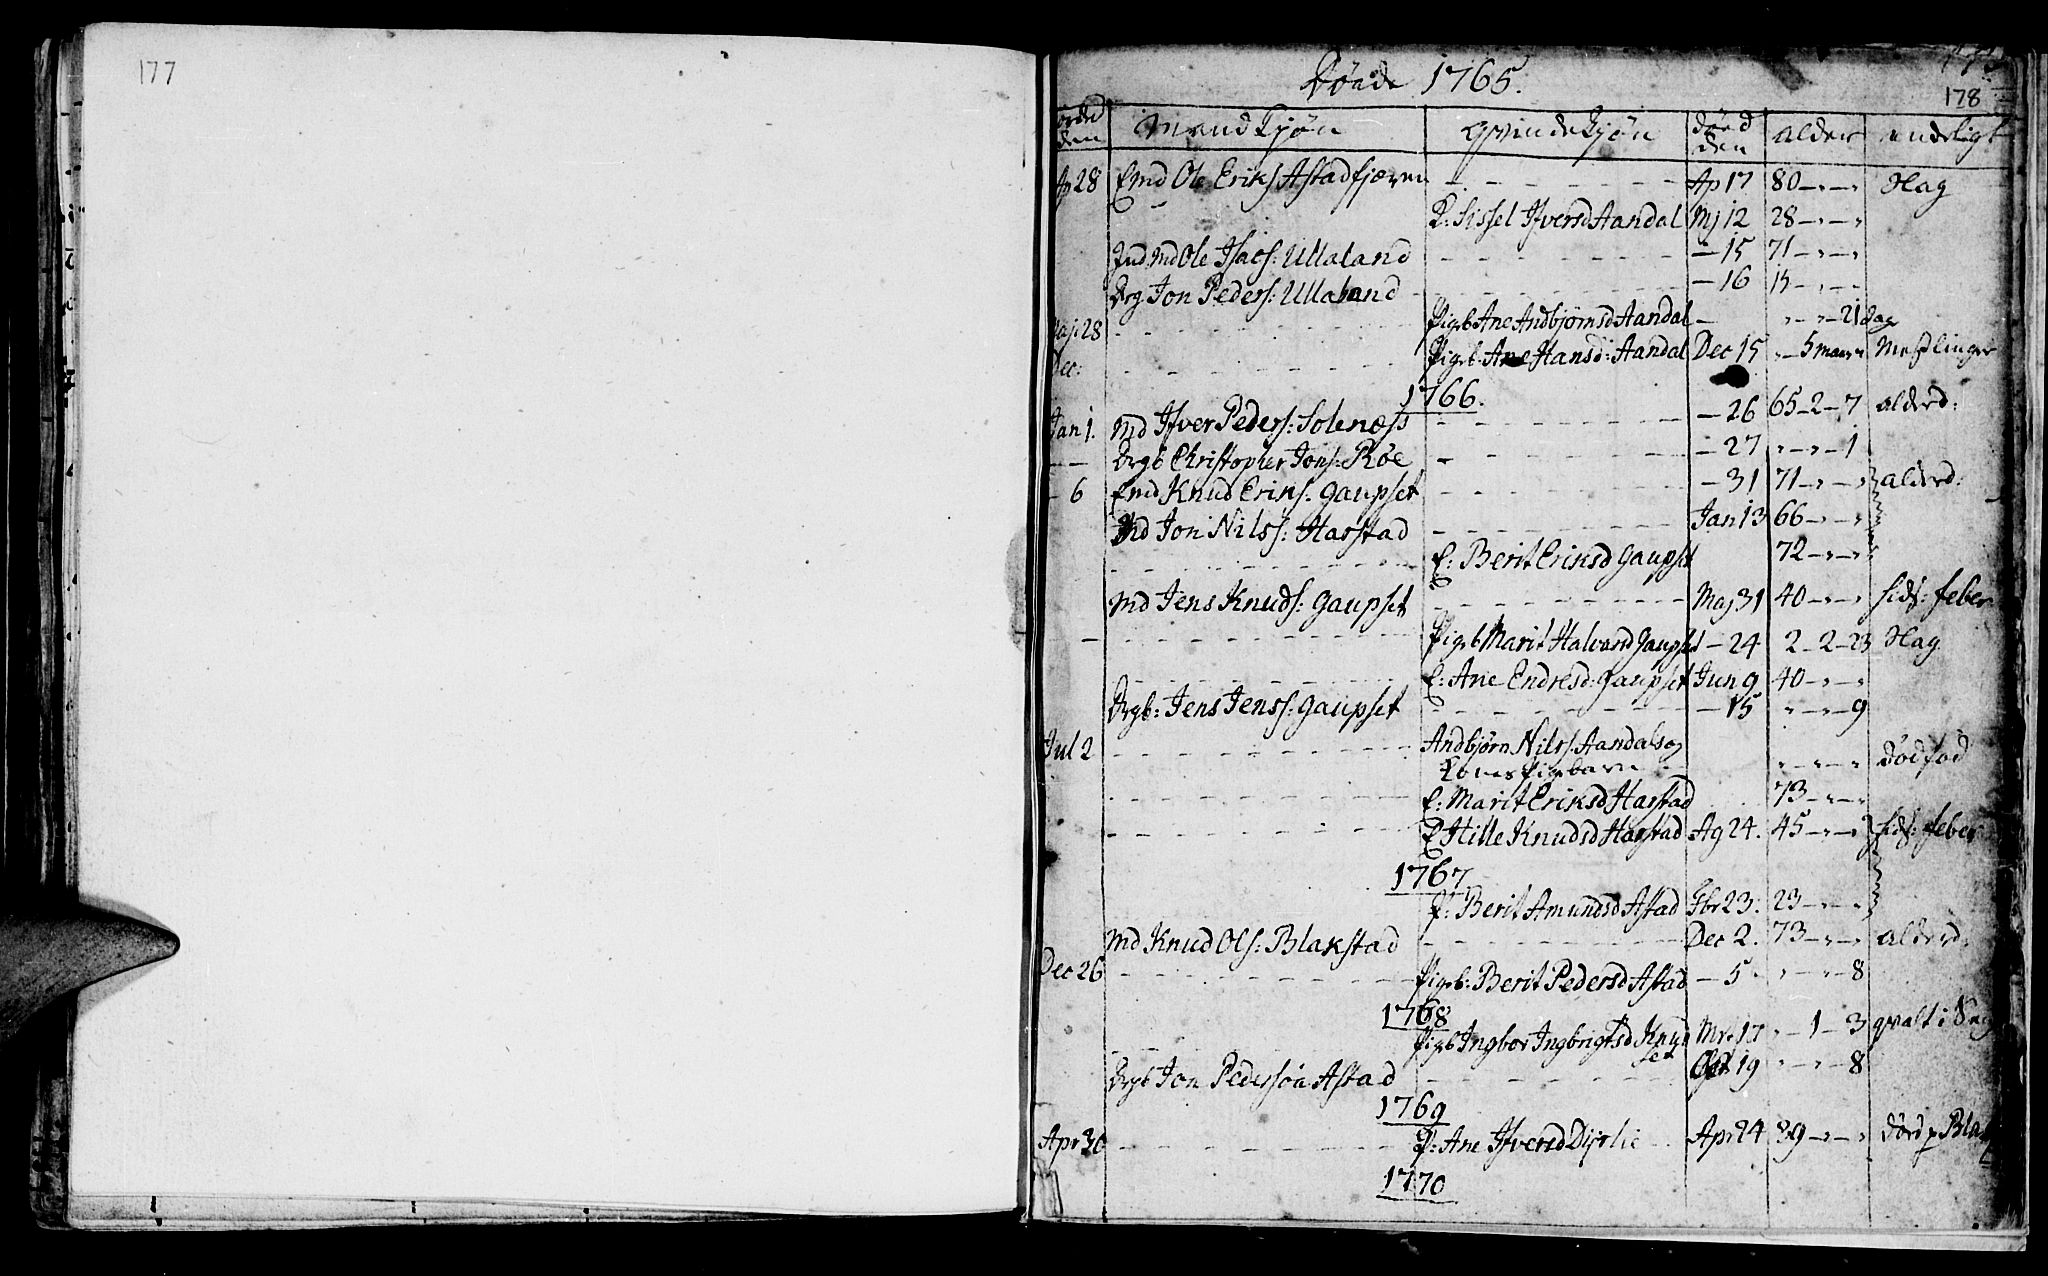 177
178
Døde 1765.
den Mandkjøn Qvindekjøn død den alder
28 Emd Ole Eriks Astadfjæren Ap 17 80 Hag
Sissel Ifversd Aandal Mj 12 28
Ind. Md Ole Isacs: Ullaland 15 71
Drg Jon Peders: Ullaland 16 15
Maj 28 Pigeb Ane Andbjørnsd Aandal 21 dag
Dec: Pigeb: Ane Hansd: Aandal Dec 15 5 maan Meslinger
1766.
Jan 1. Md Ifver Peders: Solenæss 26 65-2-7 alderd:
Drgb Christopher Jons: Røe 27 1
6 Emd Knud Eriks: Gaupset 31 71 alderd:
Md Jon Nilss: Harstad Jan 13 66
E: Berit Eriksd Gaupset 72
Md Jens Knuds: Gaupset Maj 31 40 sids: feber
Pigeb Marit Halvardsd Gaupset 24 2-2-23 Hag
E: Ane Endresd: Gaupset Jun 9 40
Drgb: Jens Jenss: Gaupset 15 9
Jul 2 Andbjørn Nilss: Aandals og
Kones Pigebarn Dødfød
E: Marit Eriksd Harstad 73
Hille Knudsd Harstad Ag 24. 45 sids: feber
1767
P: Berit Amundsd Astad Fbr 23. 23
Md Knud Ols: Blakstad Dec 2. 73 alderd:
Dec 26 Pigeb: Berit Pedersd Astad 5 8
1768
Pigeb Ingbor Ingbrigtsd Knyt
set Mrs 17 1-3 qvalt i
Drgb Jon Pedersøn Astad Oct 19 8
1769
Apr 30 P: Ane Ifversd Apr 24 39
1770